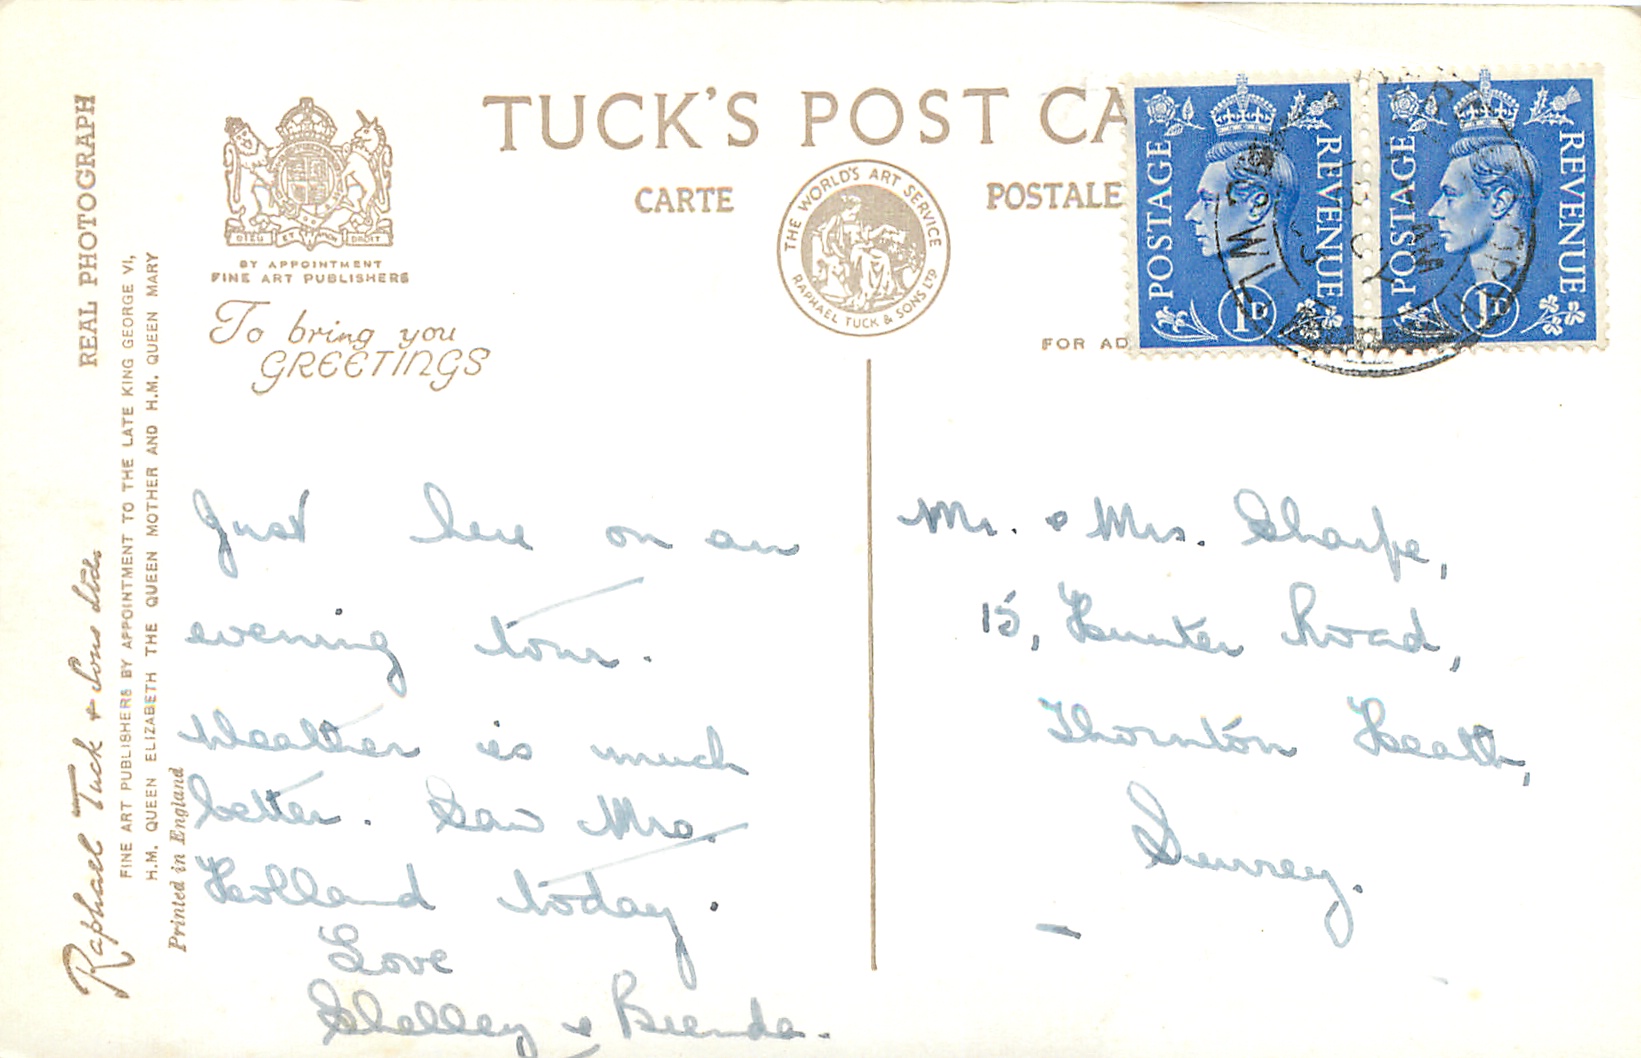 TUCK'S POST CA
CARTE POSTALE
THE WORLD'S ART SERVICE
RAPHAEL TUCK & SONS LTD
DIEU ET MON DROIT
BY APPOINTMENT
FINE ART PUBLISHERS
To bring you
GREETINGS
FOR AD
POSTAGE REVENUE
1D
POSTAGE REVENUE
1D
REAL PHOTOGRAPH
Raphael Tuck & Sons Ltd.
FINE ART PUBLISHERS BY APPOINTMENT TO THE LATE KING GEORGE VI,
H.M. QUEEN ELIZABETH THE QUEEN MOTHER AND H.M. QUEEN MARY
Printed in England
Just here on an
evening tour.
Weather is much
better. Saw Mrs.
Holland today.
Love
Shelley & Brenda.
Mr. & Mrs. Sharpe,
15, Hunter Road,
Thornton Heath,
Surrey.